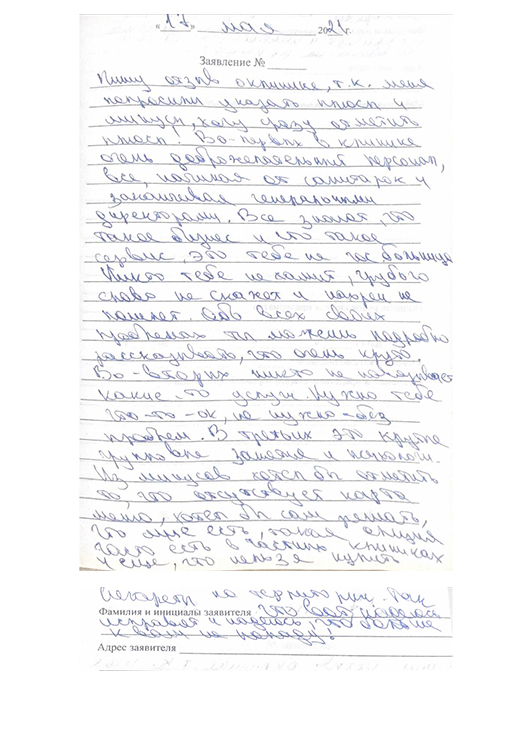 «17» мая 2021г.
Заявление №
Пишу отзыв о клинике, т.к. меня
попросили указать плюсы и
минусы, хочу сразу отметить
плюсы! Во-первых в клинике
очень доброжелательный персонал,
все, начиная от санитарок и
заканчивая генеральными
директорами. Все знают, что
такое бизнес и что такое
сервис, это тебе не гос больница
Никто тебе не хамит, грубого
слова не скажет и нахрен не
пошлет. Обо всех своих
проблемах ты можешь подробно
рассказывать, что очень круто.
Во-вторых никто не навязывает
какие-то услуги. Нужно тебе
что-то-ок, не нужно-без
проблем. В третьих это крутые
групповые занятия и психологи.
Из минусов хотел бы отметить
то, что отсутствует карта
меню, хотел бы сам решать,
что мне есть, такая опция
часто есть в частных клиниках
и еще, что нельзя курить
сигареты на территории. Так
Фамилия и инициалы заявителя что вот, надеюсь
исправят и надеюсь, что больше
к вам не попаду!
Адрес заявителя